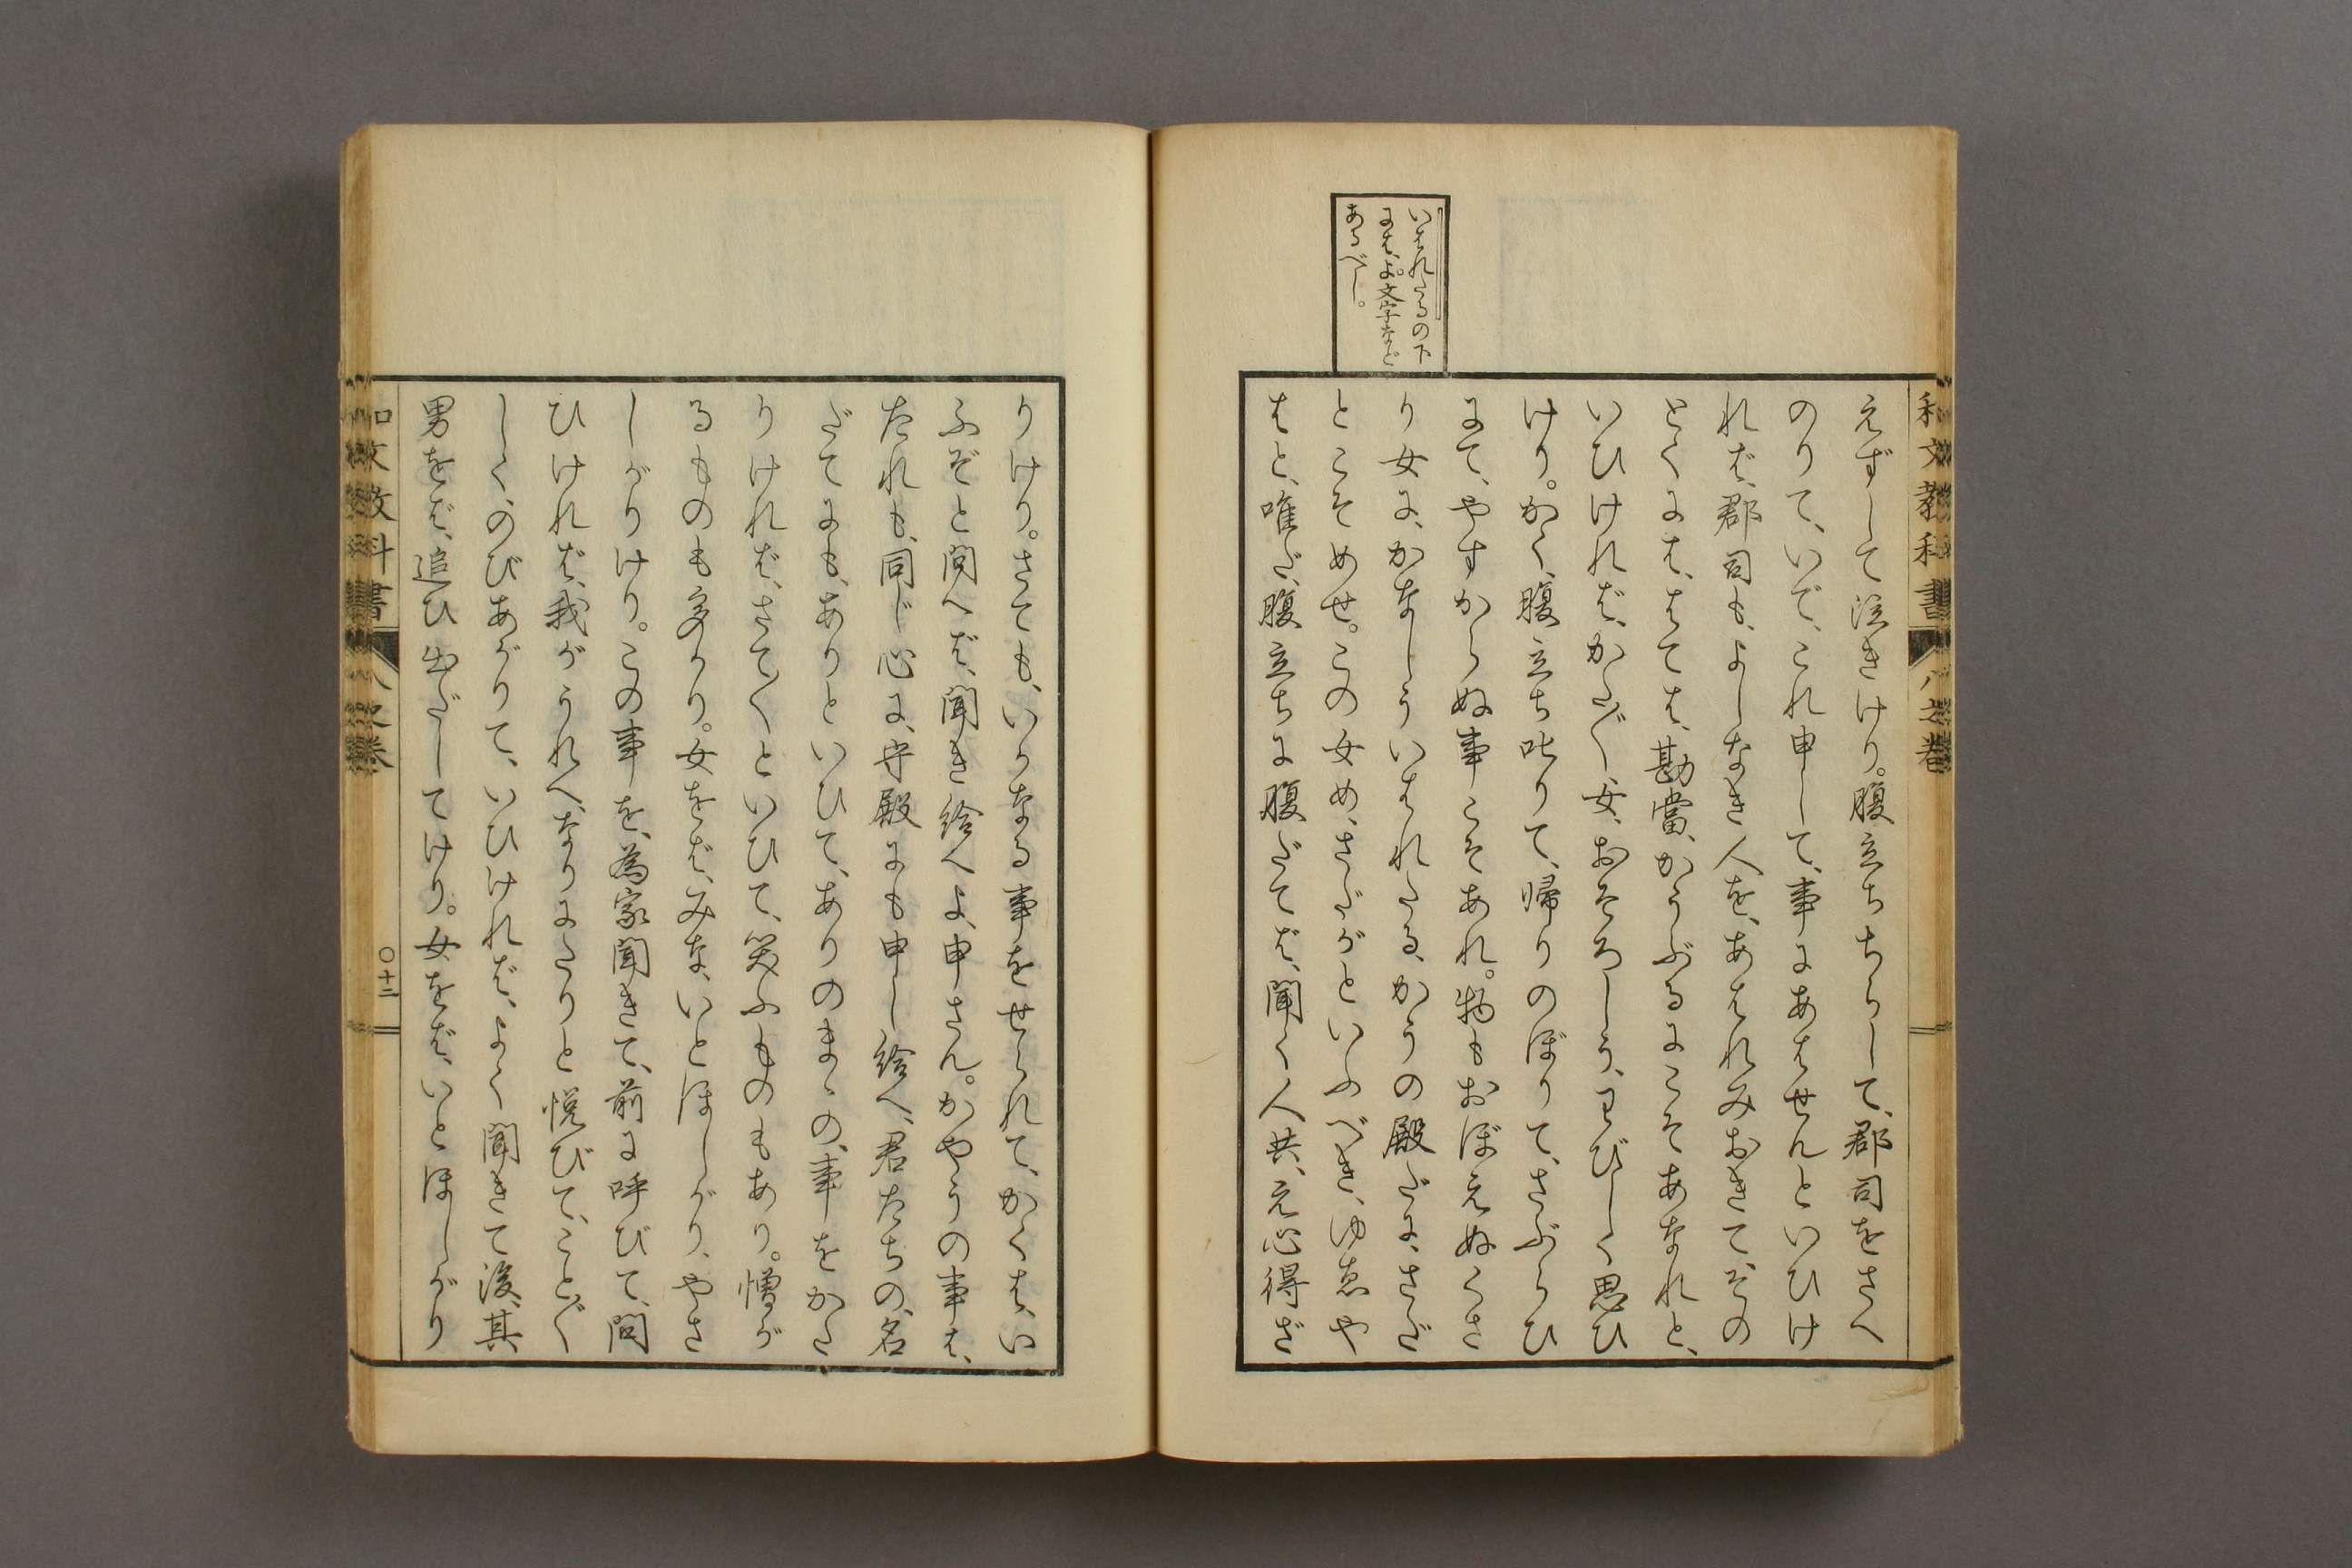 和文教科書 八之巻
いはれたるの下
には、よ文字など
あるべし。
えずして泣きけり。腹立ちちらして、郡司をさへ
のりて、いで、これ申して、事にあはせんといひけ
れば、郡司も、よしなき人を、あはれみおきて、その
とくには、はては、勘當、かうぶるにこそあなれと、
いひければ、かた〴〵女、おそろしう、わびしく思ひ
けり。かく、腹立ち叱りて、帰りのぼりて、さぶらひ
にて、やすからぬ事こそあれ。物もおぼえぬくさ
り女に、かなしういはれたる、かうの殿だに、さだ
とこそめせ。この女め、さだがといふべき、ゆゑや
はと、唯だ、腹立ちに腹だてば、聞く人共、え心得ざ
りけり。さても、いかなる事をせられて、かくは、い
ふぞと問へば、聞き給へよ、申さん。かやうの事は、
たれも、同じ心に、守殿にも申し給へ、君たちの、名
だてにも、ありといひて、ありのまゝの、事をかた
りければ、さて〳〵といひて、笑ふものもあり。憎が
るものも多かり。女をば、みな、いとほしがり、やさ
しがりけり。この事を、為家聞きて、前に呼びて、問
ひければ、我がうれへ、なりにたりと悦びて、こと〴〵
しく、のびあがりて、いひければ、よく聞きて後、其
男をば、追ひ出だしてけり。女をば、いとほしがり
和文教科書 八之巻 〇十二